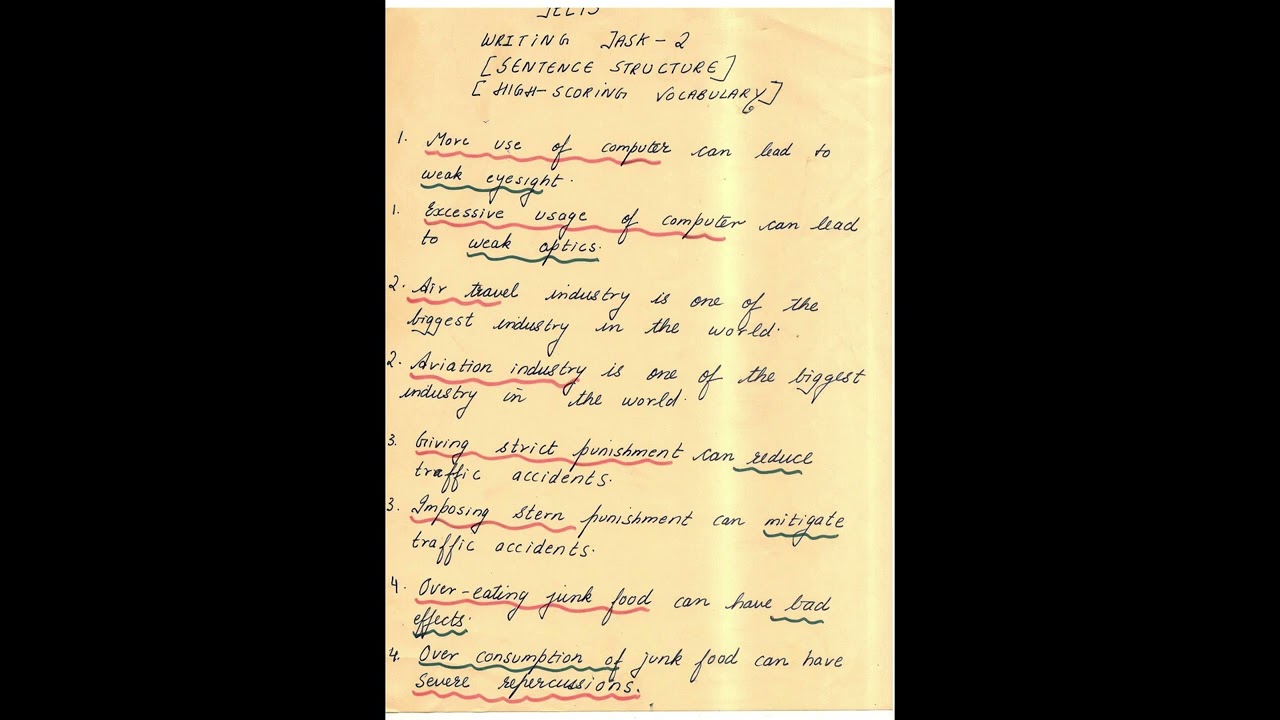 IELTS
WRITING TASK-2
[SENTENCE STRUCTURE]
[HIGH-SCORING VOCABULARY]
1. More use of computer can lead to
weak eyesight.
1. Excessive usage of computer can lead
to weak optics.
2. Air travel industry is one of the
biggest industry in the world.
2. Aviation industry is one of the biggest
industry in the world.
3. Giving strict punishment can reduce
traffic accidents.
3. Imposing stern punishment can mitigate
traffic accidents.
4. Over-eating junk food can have bad
effects.
4. Over consumption of junk food can have
severe repercussions.